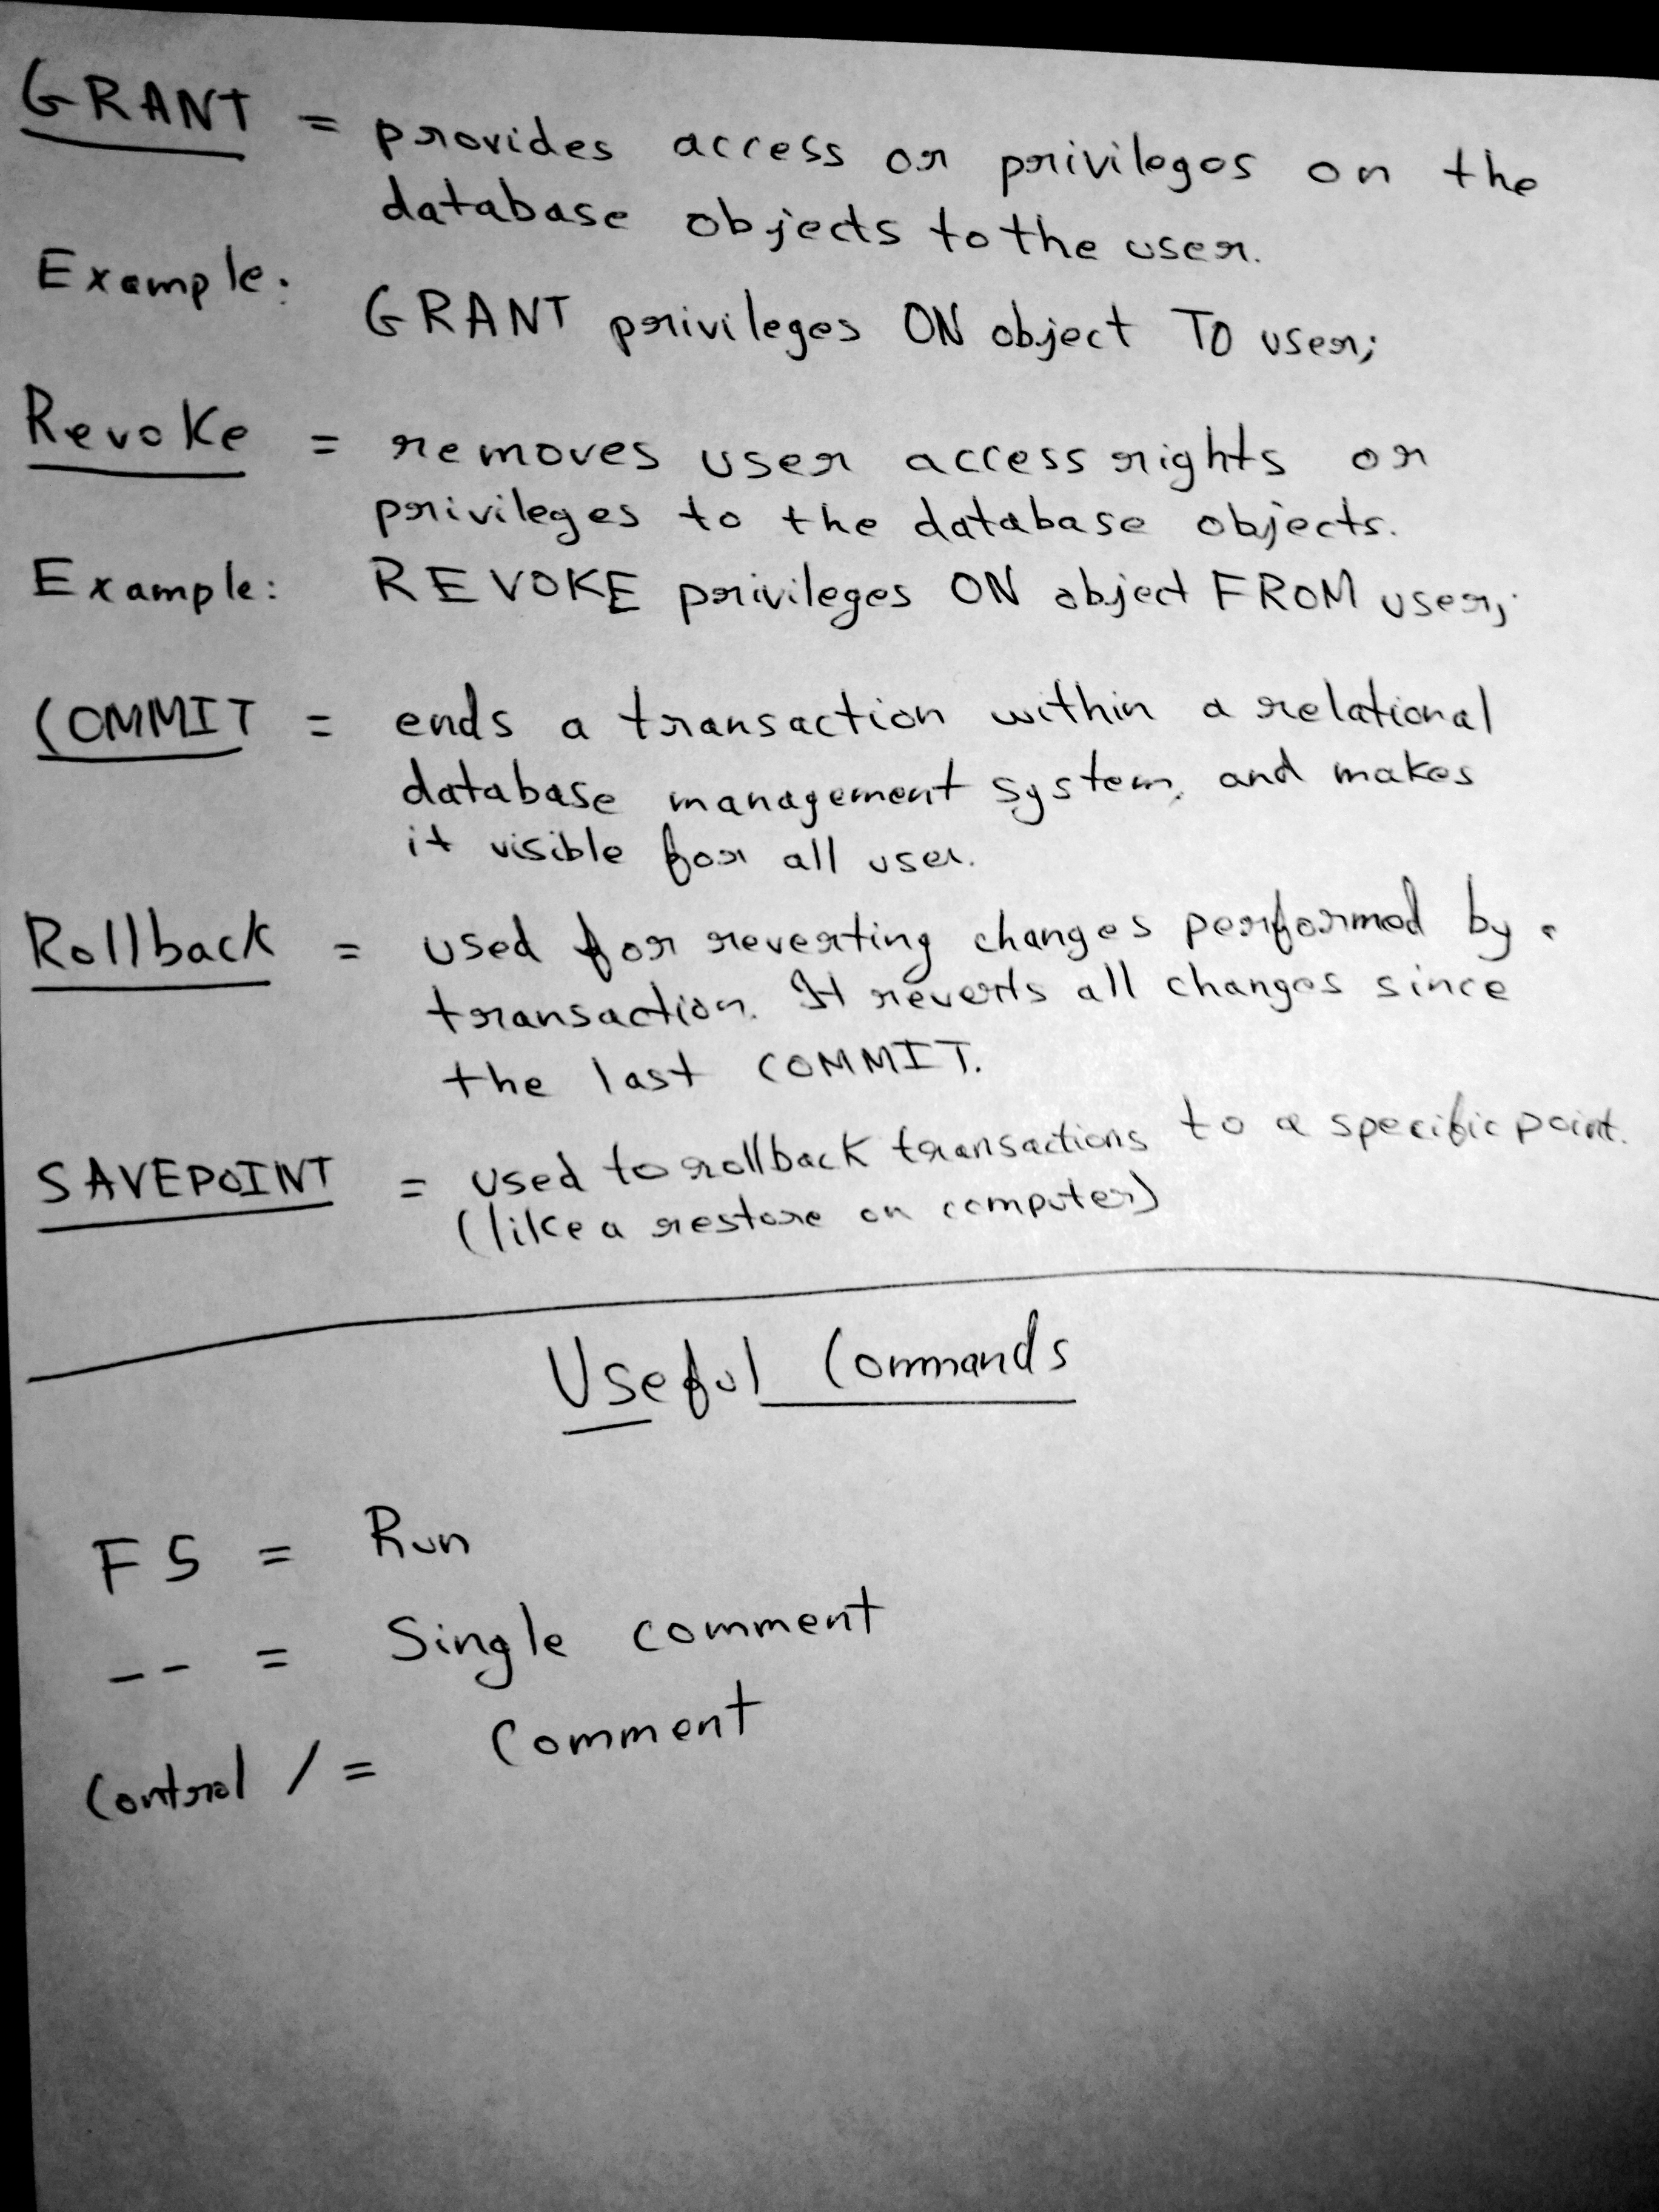 GRANT = provides access or privileges on the
database objects to the user.
Example:
GRANT privileges ON object TO user;
Revoke = removes user access rights or
privileges to the database objects.
Example: REVOKE privileges ON object FROM user;
COMMIT = ends a transaction within a relational
database management system, and makes
it visible for all user.
Rollback = used for reverting changes performed by a
transaction. It reverts all changes since
the last COMMIT.
SAVEPOINT = used to rollback transactions to a specific point.
(like a restore on computer)
Useful Commands
F5 = Run
-- = Single comment
Control / = Comment